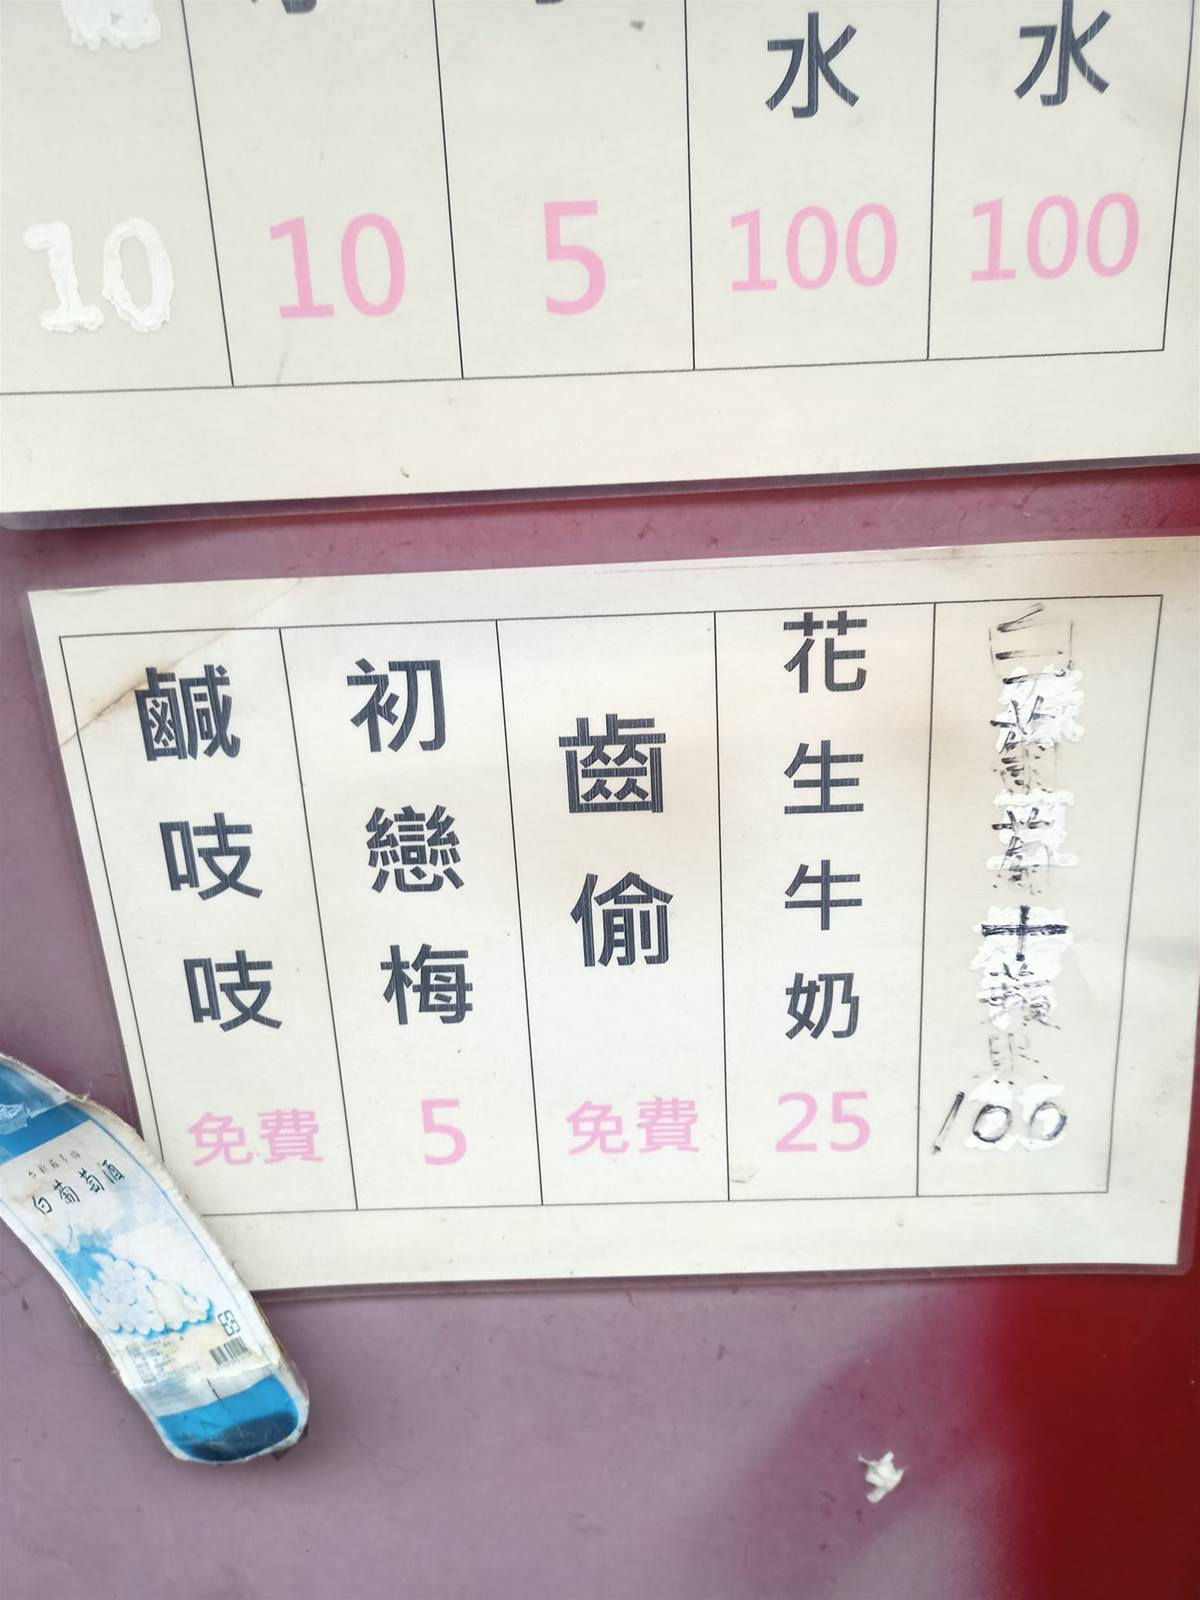 水
水
10
10
5
100
100
鹹吱吱
初戀梅
齒偷
花生牛奶
免費
5
免費
25
100
白葡萄酒